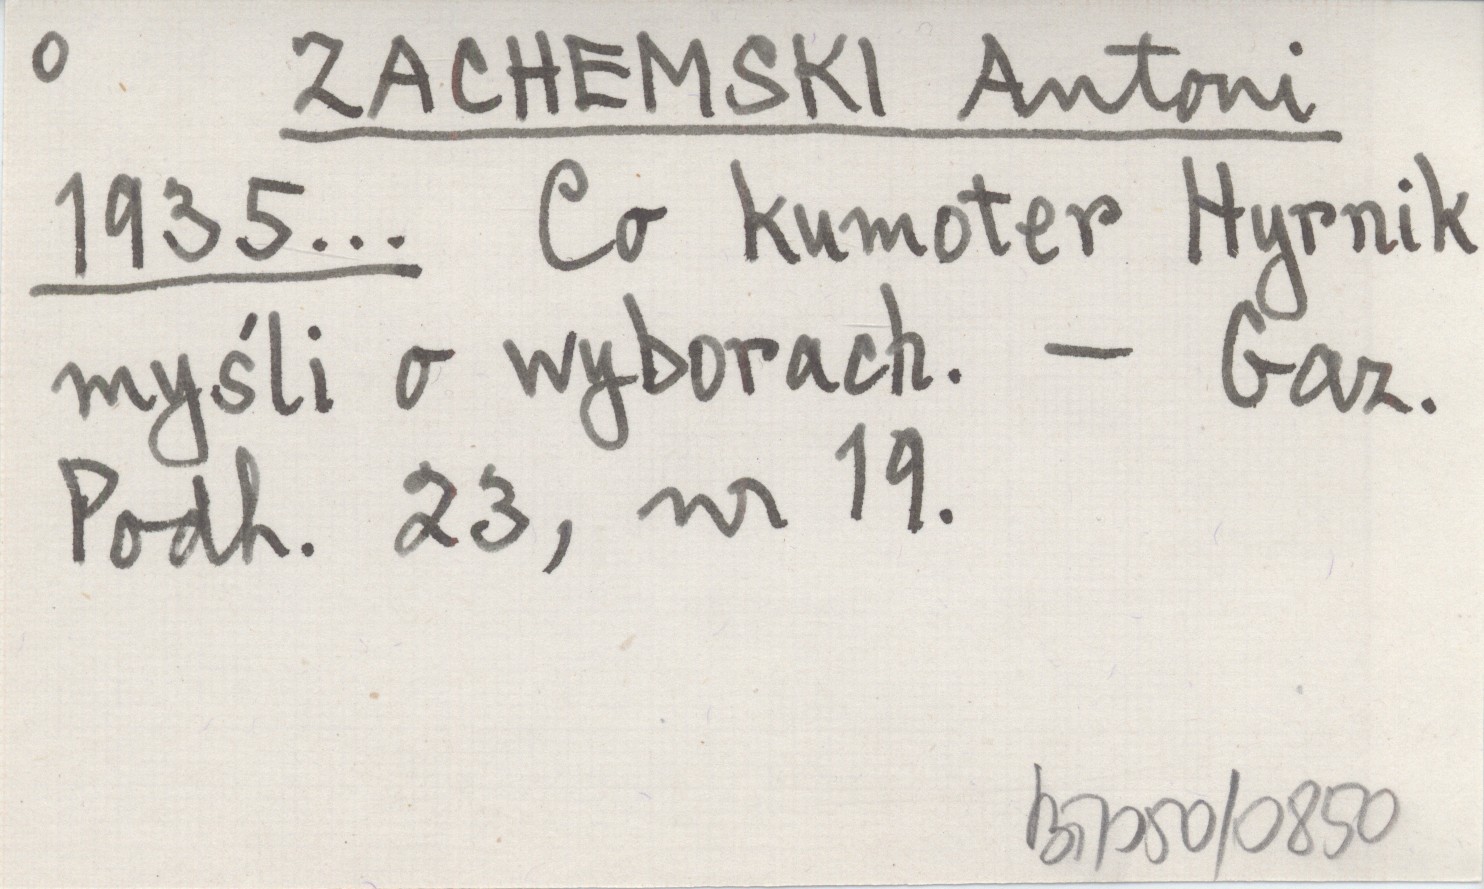 o ZACHEMSKI Antoni
1935... Co kumoter Hyrnik
myśli o wyborach. — Gaz.
Podh. 23, nr 19.